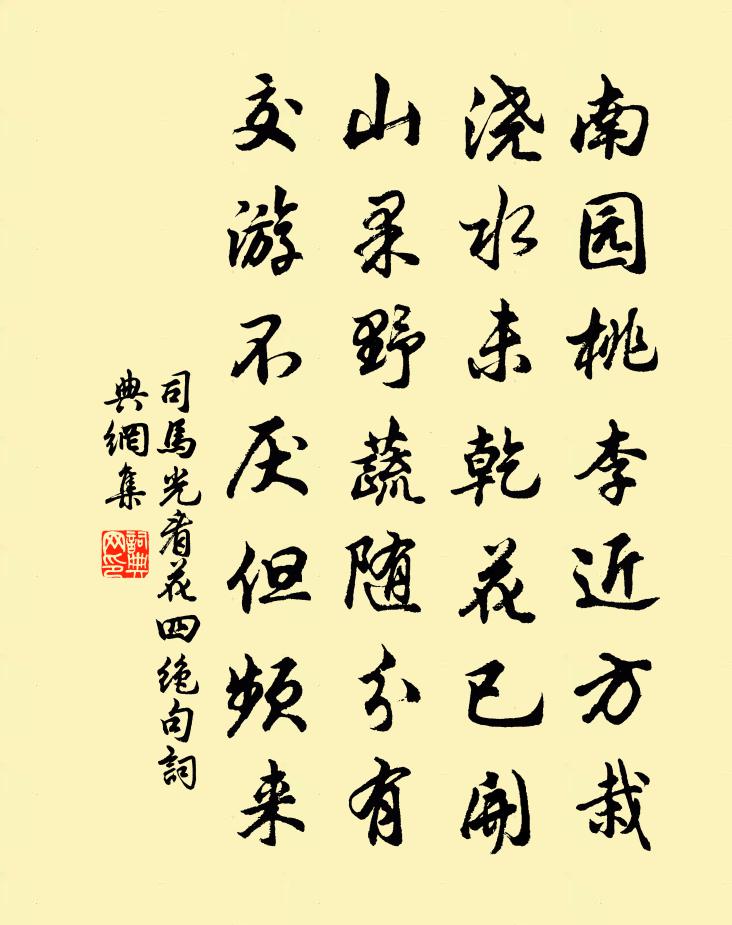 南园桃李近方栽
浇水未乾花已開
山果野蔬随分有
交游不厌但频来
司馬光看花四絶句詞
典網集
詞典网印